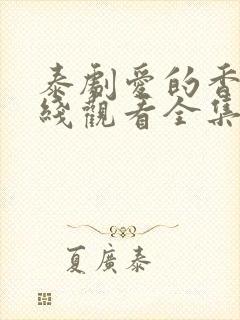 泰劇愛的香
綫觀看全集
夏廣泰